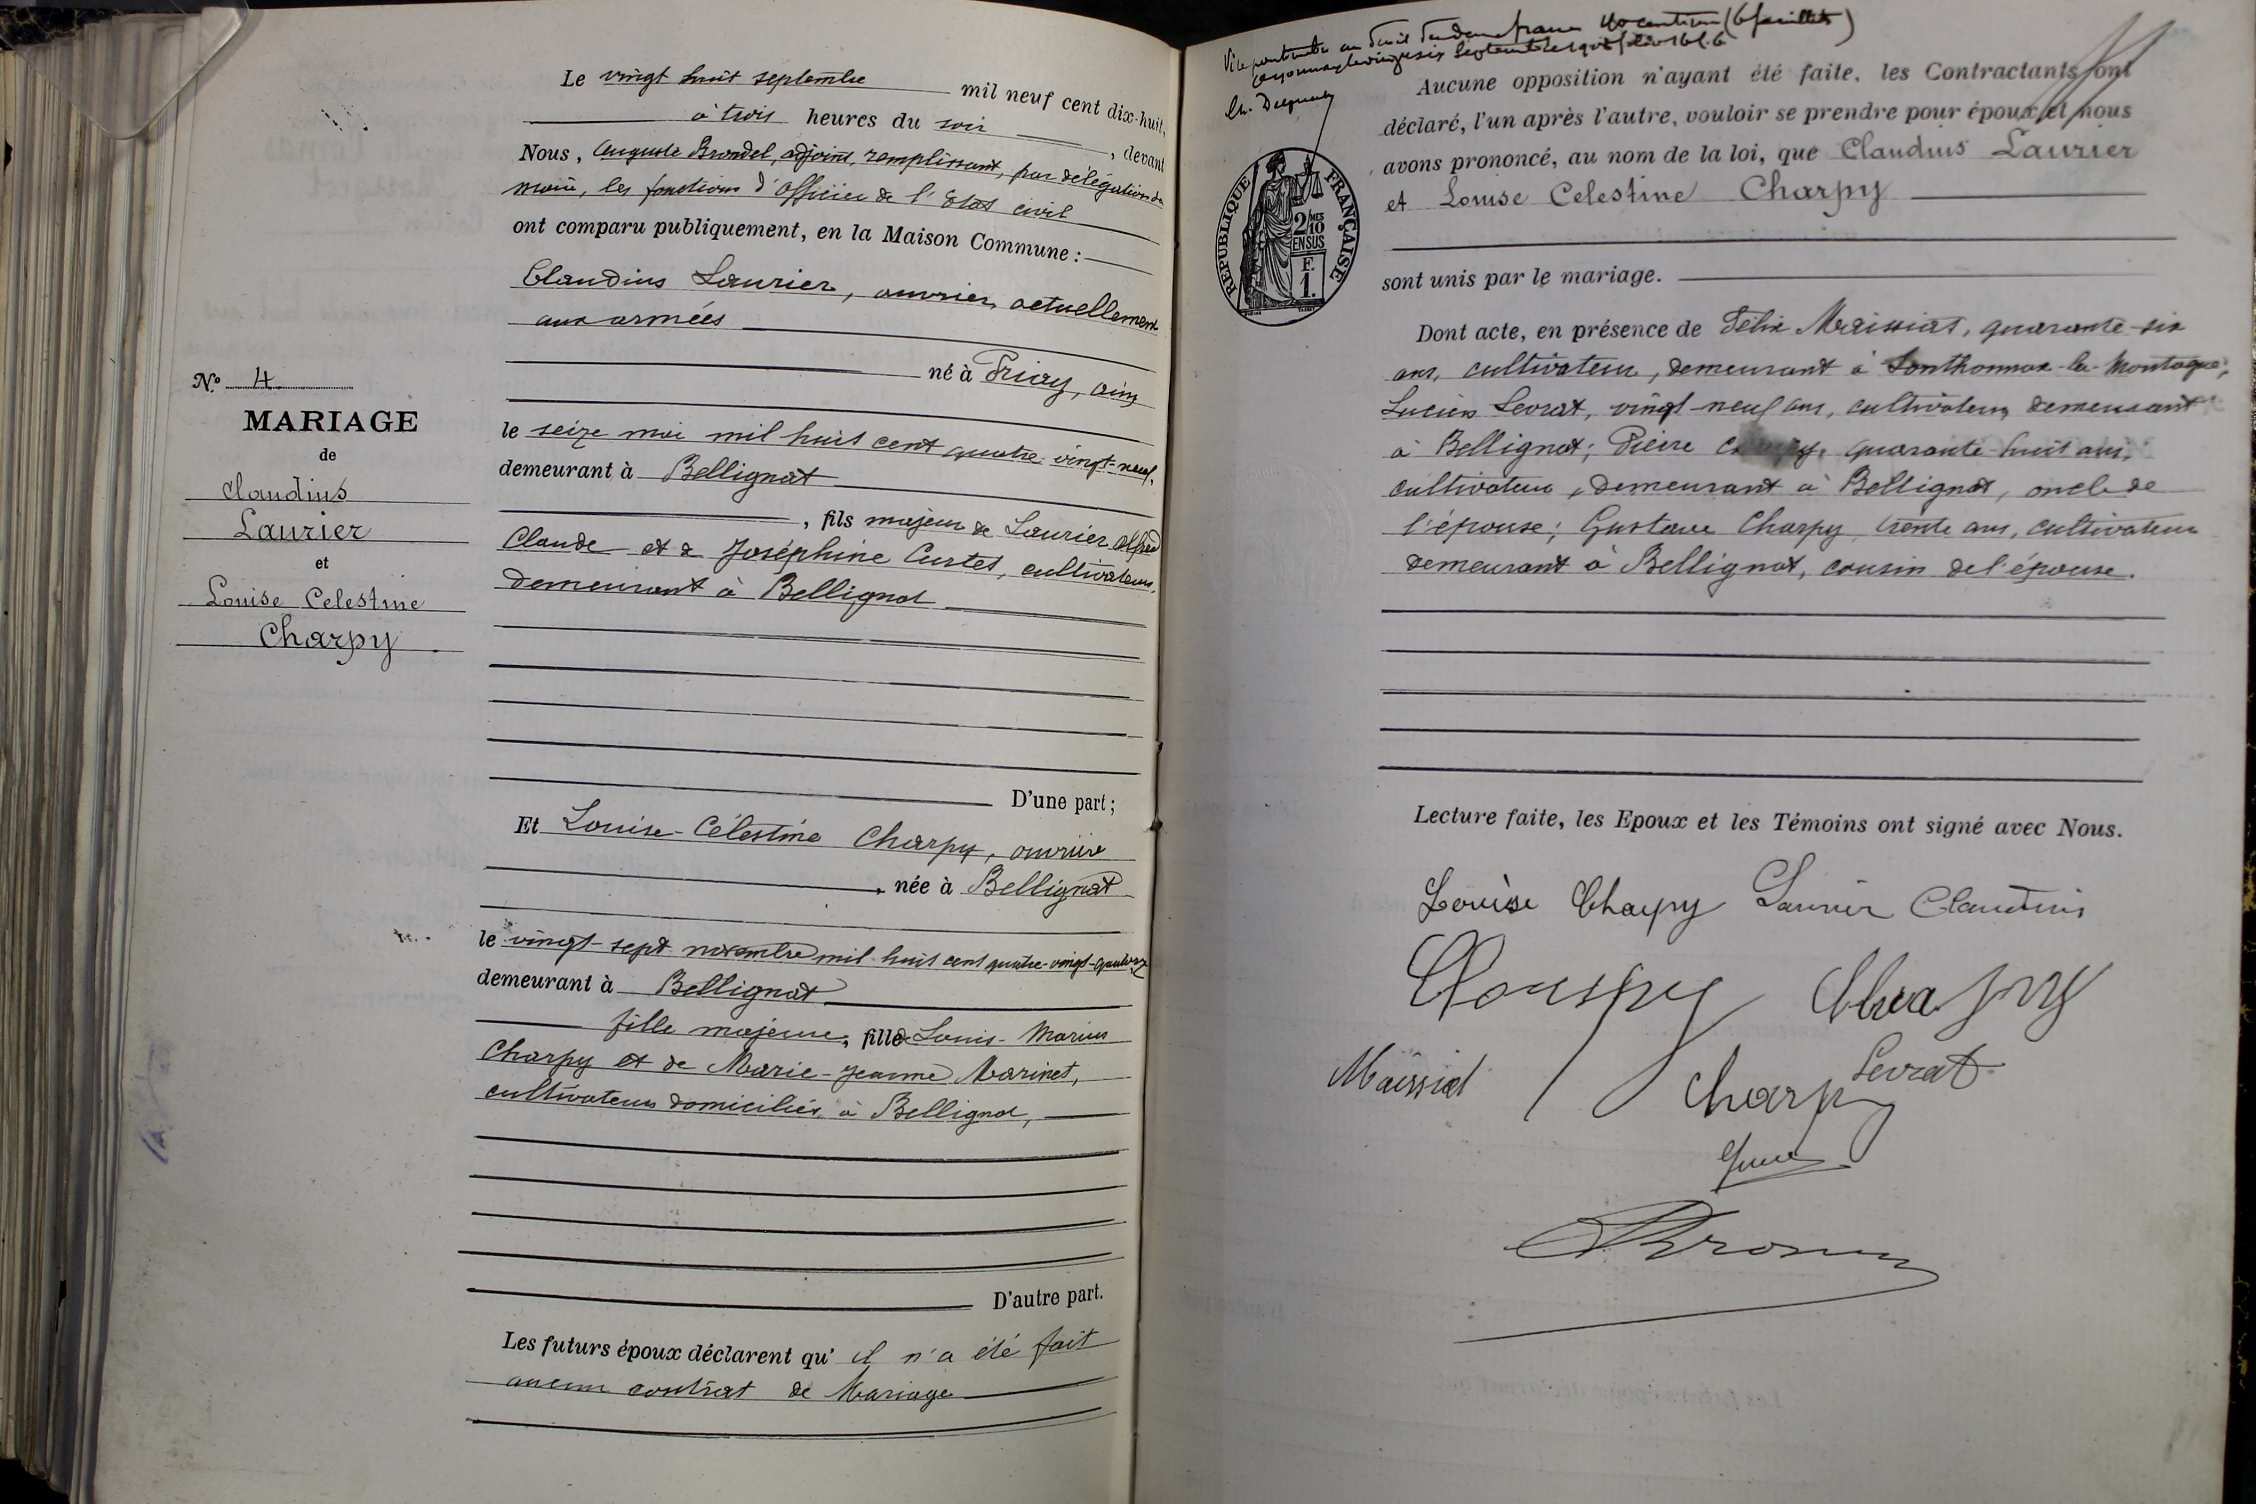 Le vingt huit septembre mil neuf cent dix-huit,
à trois heures du soir, devant
Nous, Auguste Brondel, adjoint, remplissant, par délégation du
maire, les fonctions d'officier de l'Etat civil
ont comparu publiquement, en la Maison Commune :
Claudius Laurier, ouvrier, actuellement
aux armées
né à Druillat, Ain,
le seize mai mil huit cent quatre-vingt-neuf,
demeurant à Bellignat
, fils majeur de Laurier Alfred
Claude et de Joséphine Curtet, cultivateurs,
demeurant à Bellignat
N° 4
MARIAGE
de
Claudius
Laurier
et
Louise Celestine
Charpy
D'une part ;
Et Louise-Célestine Charpy, ouvrière
, née à Bellignat
le vingt-sept novembre mil huit cent quatre-vingt-quatorze
demeurant à Bellignat
fille majeure, fille de Louis-Marius
Charpy et de Marie-Jeanne Marinet,
cultivateurs domiciliés à Bellignat,
D'autre part.
Les futurs époux déclarent qu'il n'a été fait
aucun contrat de Mariage
40 centimes (6 feuillets)
RÉPUBLIQUE FRANÇAISE
2/10 MES
EN SUS
F.
1.
Aucune opposition n'ayant été faite, les Contractants ont
déclaré, l'un après l'autre, vouloir se prendre pour époux, et nous
avons prononcé, au nom de la loi, que Claudius Laurier
et Louise Celestine Charpy
sont unis par le mariage.
Dont acte, en présence de Félix Maissiat, quarante-six
ans, cultivateur, demeurant à Sonthonnax-la-Montagne;
Lucien Levrat, vingt-neuf ans, cultivateur, demeurant
à Bellignat; Pierre Charpy, quarante-huit ans,
cultivateur, demeurant à Bellignat, oncle de
l'épouse; Gustave Charpy, trente ans, cultivateur
demeurant à Bellignat, cousin de l'épouse.
Lecture faite, les Epoux et les Témoins ont signé avec Nous.
Louise Charpy Laurier Claudius
Charpy
Maissiat
Levrat
Charpy